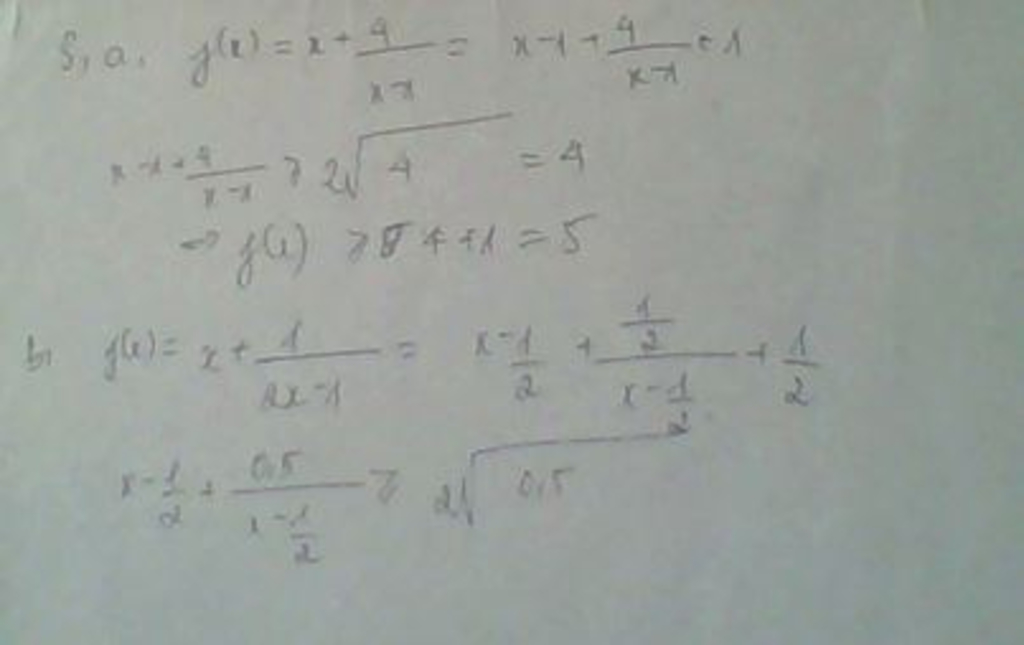 5, a, f(x) = x + 4/(x-1) = x-1 + 4/(x-1) + 1
x-1 + 4/(x-1) ≥ 2√4 = 4
=> f(x) ≥ 4 + 1 = 5
b, f(x) = x + 1/(2x-1) = x - 1/2 + (1/2)/(x - 1/2) + 1/2
x - 1/2 + 0,5/(x - 1/2) ≥ 2√0,5